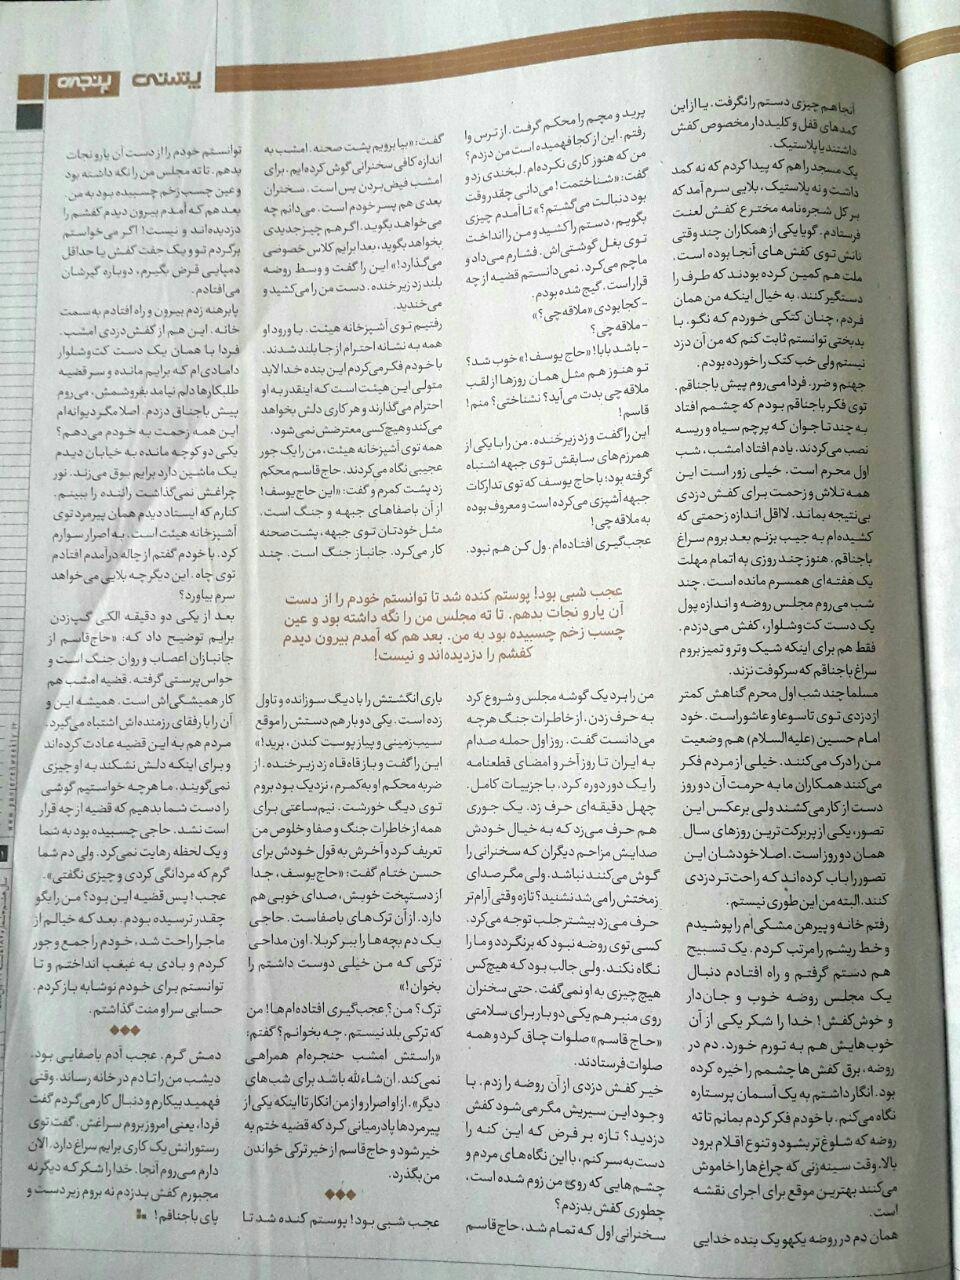 پستی پنجره
آنجا هم چیزی دستم را نگرفت. یا از این
کمدهای قفل و کلیددار مخصوص کفش
داشتند یا پلاستیک.
یک مسجد را هم که پیدا کردم که نه کمد
داشت و نه پلاستیک، بلایی سرم آمد که
بر کل شجره‌نامه مخترع کفش لعنت
فرستادم. گویا یکی از همکاران چند وقتی
نانش توی کفش‌های آنجا بوده است.
ملت هم کمین کرده بودند که طرف را
دستگیر کنند. به خیال اینکه من همان
فردم، چنان کتکی خوردم که نگو. با
بدبختی توانستم ثابت کنم که من آن دزد
نیستم ولی خب کتک را خورده بودم.
جهنم و ضرر. فردا می‌روم پیش باجناقم.
توی فکر باجناقم بودم که چشمم افتاد
به چند تا جوان که پرچم سیاه و ریسه
نصب می‌کردند. یادم افتاد امشب، شب
اول محرم است. خیلی زور است این
همه تلاش و زحمت برای کفش دزدی
بی‌نتیجه بماند. لااقل اندازه زحمتی که
کشیده‌ام به جیب بزنم بعد بروم سراغ
باجناقم. هنوز چند روزی به اتمام مهلت
یک هفته‌ای همسرم مانده است. چند
شب می‌روم مجلس روضه و اندازه پول
یک دست کت‌وشلوار، کفش می‌دزدم.
فقط هم برای اینکه شیک و تر و تمیز بروم
سراغ باجناقم که سرکوفت نزند.
مسلما چند شب اول محرم گناهش کمتر
از دزدی توی تاسوعا و عاشوراست. خود
امام حسین (علیه‌السلام) هم وضعیت
من را درک می‌کنند. خیلی از مردم فکر
می‌کنند همکاران ما به حرمت آن دو روز
دست از کار می‌کشند ولی برعکس این
تصور، یکی از پربرکت‌ترین روزهای سال
همان دو روز است. اصلا خودشان این
تصور را باب کرده‌اند که راحت‌تر دزدی
کنند. البته من این طوری نیستم.
رفتم خانه و پیرهن مشکی ام را پوشیدم
و خط ریشم را مرتب کردم. یک تسبیح
هم دستم گرفتم و راه افتادم دنبال
یک مجلس روضه خوب و جان‌دار
و خوش‌کفش! خدا را شکر یکی از آن
خوب‌هایش هم به تورم خورد. دم در
روضه، برق کفش‌ها چشمم را خیره کرده
بود. انگار داشتم به یک آسمان پرستاره
نگاه می‌کنم. با خودم فکر کردم بمانم تا ته
روضه که شلوغ‌تر بشود و تنوع اقلام برود
بالا. وقت سینه‌زنی که چراغ‌ها را خاموش
می‌کنند بهترین موقع برای اجرای نقشه
است.
همان دم در روضه یکهو یک بنده خدایی
پرید و مچم را محکم گرفت. از ترس وا
رفتم. این از کجا فهمیده است من دزدم؟
من که هنوز کاری نکرده‌ام. لبخندی زد و
گفت: «شناختمت! می‌دانی چقدر وقت
بود دنبالت می‌گشتم؟» تا آمدم چیزی
بگویم، دستم را کشید و من را انداخت
توی بغل گوشتی‌اش. فشارم می‌داد و
ماچم می‌کرد. نمی‌دانستم قضیه از چه
قرار است. گیج شده بودم.
- کجا بودی «ملاقه‌چی؟»
- ملاقه چی؟
- باشد بابا! «حاج یوسف!» خوب شد؟
تو هنوز هم مثل همان روزها از لقب
ملاقه چی بدت می‌آید؟ نشناختی؟ منم!
قاسم!
این را گفت و زد زیر خنده. من را با یکی از
همرزم‌های سابقش توی جبهه اشتباه
گرفته بود؛ با حاج یوسف که توی تدارکات
جبهه آشپزی می‌کرده است و معروف بوده
به ملاقه چی!
عجب‌گیری افتاده‌ام. ول کن هم نبود.
من را برد یک گوشه مجلس و شروع کرد
به حرف زدن. از خاطرات جنگ هرچه
می‌دانست گفت. روز اول حمله صدام
به ایران تا روز آخر و امضای قطعنامه
را یک دور دوره کرد. با جزییات کامل.
چهل دقیقه‌ای حرف زد. یک جوری
هم حرف می‌زد که به خیال خودش
صدایش مزاحم دیگران که سخنرانی را
گوش می‌کنند نباشد. ولی مگر صدای
زمختش را می‌شد نشنید؟ تازه وقتی آرام‌تر
حرف می‌زد بیشتر جلب توجه می‌کرد.
کسی توی روضه نبود که برنگردد و ما را
نگاه نکند. ولی جالب بود که هیچ‌کس
هیچ چیزی به او نمی‌گفت. حتی سخنران
روی منبر هم یکی دو بار برای سلامتی
«حاج قاسم» صلوات چاق کرد و همه
صلوات فرستادند.
خیر کفش دزدی از آن روضه را زدم. با
وجود این سیریش مگر می‌شود کفش
دزدید؟ تازه بر فرض که این کنه را
دست‌به‌سر کنم، با این نگاه‌های مردم و
چشم‌هایی که روی من زوم شده است،
چطوری کفش بدزدم؟
سخنرانی اول که تمام شد، حاج قاسم
گفت: «بیا برویم پشت صحنه. امشب به
اندازه کافی سخنرانی گوش کرده‌ایم. برای
امشب فیض بردن بس است. سخنران
بعدی هم پسر خودم است. می‌دانم چه
می‌خواهد بگوید. اگر هم چیز جدیدی
بخواهد بگوید، بعدا برایم کلاس خصوصی
می‌گذارد!» این را گفت و وسط روضه
بلند زد زیر خنده. دست من را می‌کشید و
می‌خندید.
رفتیم توی آشپزخانه هیئت. با ورود او
همه به نشانه احترام از جا بلند شدند.
با خودم فکر می‌کردم این بنده خدا لابد
متولی این هیئت است که اینقدر به او
احترام می‌گذارند و هر کاری دلش بخواهد
می‌کند و هیچ‌کسی معترضش نمی‌شود.
همه توی آشپزخانه هیئت، من را یک جور
عجیبی نگاه می‌کردند. حاج قاسم محکم
زد پشت کمرم و گفت: «این حاج یوسف!
از آن باصفاهای جبهه و جنگ است.
مثل خودتان توی جبهه، پشت صحنه
کار می‌کرد. جانباز جنگ است. چند
باری انگشتش را با دیگ سوزانده و تاول
زده است. یکی دو بار هم دستش را موقع
سیب‌زمینی و پیاز پوست کندن، برید!»
این را گفت و باز قاه‌قاه زد زیر خنده. از
ضربه محکم او به کمرم، نزدیک بود بروم
توی دیگ خورشت. نیم‌ساعتی برای
همه از خاطرات جنگ و صفا و خلوص من
تعریف کرد و آخرش به قول خودش برای
حسن ختام گفت: «حاج یوسف، جدا
از دستپخت خوبش، صدای خوبی هم
دارد. از آن ترک‌های باصفاست. حاجی
یک دم بچه‌ها را ببر کربلا. اون مداحی
ترکی که من خیلی دوست داشتم را
بخوان!»
ترک؟ من؟ عجب‌گیری افتاده‌ام‌ها! من
که ترکی بلد نیستم. چه بخوانم؟ گفتم:
«راستش امشب حنجره‌ام همراهی
نمی‌کند. ان شاءالله باشد برای شب‌های
دیگر». از او اصرار و از من انکار تا اینکه یکی از
پیرمردها پادرمیانی کرد که قضیه ختم به
خیر شود و حاج قاسم از خیر ترکی خواندن
من بگذرد.
عجب شبی بود! پوستم کنده شد تا
توانستم خودم را از دست آن یارو نجات
بدهم. تا ته مجلس من را نگه داشته بود
و عین چسب زخم چسبیده بود به من.
بعد هم که آمدم بیرون دیدم کفشم را
دزدیده‌اند و نیست! اگر می‌خواستم
برگردم تو و یک جفت کفش یا حداقل
دمپایی قرض بگیرم، دوباره گیرشان
می‌افتادم.
پابرهنه زدم بیرون و راه افتادم به سمت
خانه. این هم از کفش‌دزدی امشب.
فردا با همان یک دست کت‌وشلوار
دامادی‌ام که برایم مانده و سر قضیه
طلبکارها دلم نیامد بفروشمش، می‌روم
پیش باجناق دزدم. اصلا مگر دیوانه‌ام
این همه زحمت به خودم می‌دهم؟
یکی دو کوچه مانده به خیابان دیدم
یک ماشین دارد برایم بوق می‌زند. نور
چراغش نمی‌گذاشت راننده را ببینم.
کنارم که ایستاد دیدم همان پیرمرد توی
آشپزخانه هیئت است. به اصرار سوارم
کرد. با خودم گفتم از چاله درآمدم افتادم
توی چاه. این دیگر چه بلایی می‌خواهد
سرم بیاورد؟
بعد از یکی دو دقیقه الکی گپ‌زدن
برایم توضیح داد که: «حاج‌قاسم از
جانبازان اعصاب و روان جنگ است و
حواس‌پرتی گرفته. قضیه امشب هم
کار همیشگی‌اش است. همیشه این و
آن را با رفقای رزمنده‌اش اشتباه می‌گیرد.
مردم هم به این قضیه عادت کرده‌اند
و برای اینکه دلش نشکند به او چیزی
نمی‌گویند. ما هرچه خواستیم گوشی
را دست شما بدهیم که قضیه از چه قرار
است نشد. حاجی چسبیده بود به شما
و یک لحظه رهایت نمی‌کرد. ولی دم شما
گرم که مردانگی کردی و چیزی نگفتی».
عجب! پس قضیه این بود؟ من را بگو
چقدر ترسیده بودم. بعد که خیالم از
ماجرا راحت شد، خودم را جمع و جور
کردم و بادی به غبغب انداختم و تا
توانستم برای خودم نوشابه باز کردم.
حسابی سر او منت گذاشتم.
دمش گرم. عجب آدم باصفایی بود.
دیشب من را تا دم در خانه رساند. وقتی
فهمید بیکارم و دنبال کار می‌گردم گفت
فردا، یعنی امروز بروم سراغش. گفت توی
رستورانش یک کاری برایم سراغ دارد. الان
دارم می‌روم آنجا. خدا را شکر که دیگر نه
مجبورم کفش بدزدم نه بروم زیر دست و
پای باجناقم!
عجب شبی بود! پوستم کنده شد تا توانستم خودم را از دست
آن یارو نجات بدهم. تا ته مجلس من را نگه داشته بود و عین
چسب زخم چسبیده بود به من. بعد هم که آمدم بیرون دیدم
کفشم را دزدیده‌اند و نیست!